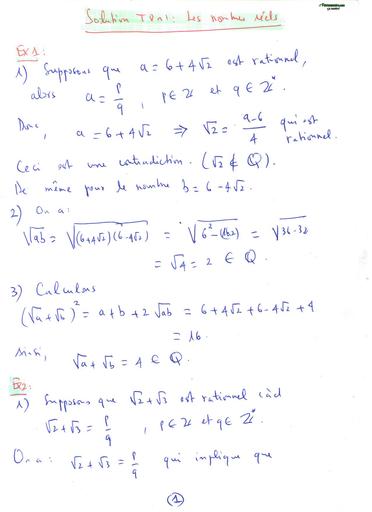 Solution TD n°1: Les nombres réels
Ex1:
1) Supposons que a = 6+4√2 est rationnel,
alors a = p/q , p ∈ ℤ et q ∈ ℤ*.
Donc, a = 6+4√2 ⇒ √2 = (a-6)/4 qui est
rationnel.
Ceci est une contradiction. (√2 ∉ ℚ).
De même pour le nombre b = 6-4√2.
2) On a:
√ab = √((6+4√2)(6-4√2)) = √(6²-(4√2)²) = √(36-32)
= √4 = 2 ∈ ℚ.
3) Calculons
(√a+√b)² = a+b+2√ab = 6+4√2+6-4√2+4
= 16.
Ainsi, √a+√b = 4 ∈ ℚ.
Ex2:
1) Supposons que √2+√3 est rationnel càd
√2+√3 = p/q , p ∈ ℤ et q ∈ ℤ*.
On a: √2+√3 = p/q qui implique que
1